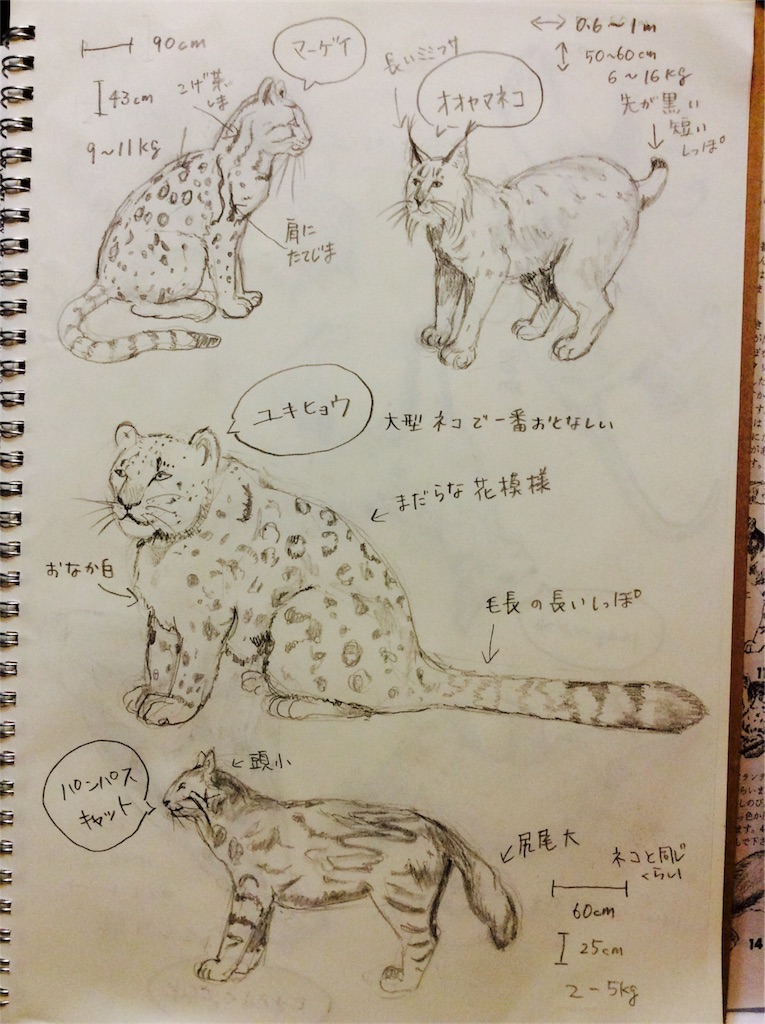 90cm
43cm
9〜11kg
マーゲイ
こげ茶
しま
肩に
たてじま
長いミミフサ
オオヤマネコ
0.6〜1m
50〜60cm
6〜16kg
先が黒い
短い
しっぽ
ユキヒョウ
大型ネコで一番おとなしい
まだらな花模様
おなか白
毛長の長いしっぽ
パンパス
キャット
頭小
尻尾大
ネコと同じ
くらい
60cm
25cm
2-5kg
14